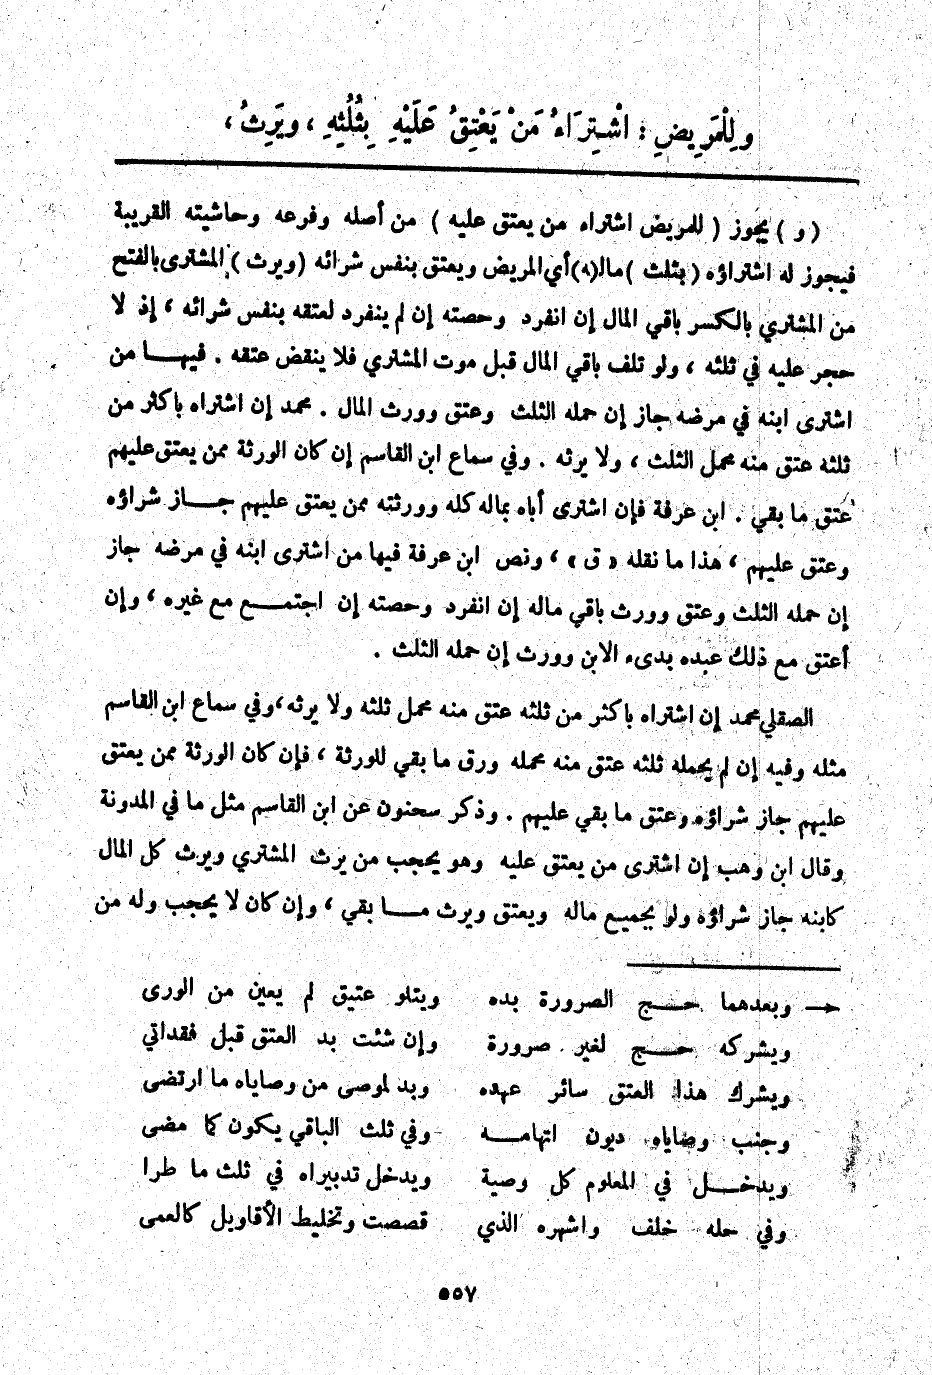 وَلِلْمَرِيضِ : اشْتِرَاءُ مَنْ يَعْتِقُ عَلَيْهِ بِثُلُثِهِ ، ويَرِثُ ،
( و ) يجوز ( للمريض اشتراء من يعتق عليه ) من أصله وفرعه وحاشيته القريبة
فيجوز له اشتراؤه ( بثلث )ماله(ه)أي المريض ويعتق بنفس شرائه (ويرث ) المشترى بالفتح
من المشتري بالكسر باقي المال إن انفرد وحصته إن لم ينفرد لعتقه بنفس شرائه ، إذ لا
حجر عليه في ثلثه ، ولو تلف باقي المال قبل موت المشتري فلا ينقض عتقه . فيهـا من
اشترى ابنه في مرضه جاز إن حمله الثلث وعتق وورث المال . محمد إن اشتراه بأكثر من
ثلثه عتق منه محمل الثلث ، ولا يرثه . وفي سماع ابن القاسم إن كان الورثة ممن يعتق عليهم
عتق ما بقي . ابن عرفة فإن اشترى أباه بماله كله وورثته ممن يعتق عليهم جـاز شراؤه
وعتق عليهم ، هذا ما نقله « ق » ، ونص ابن عرفة فيها من اشترى ابنه في مرضه جاز
إن حمله الثلث وعتق وورث باقي ماله إن انفرد وحصته إن اجتمـع مع غيره ، وإن
أعتق مع ذلك عبده بدىء الابن وورث إن حمله الثلث .
الصقلي محمد إن اشتراه بأكثر من ثلثه عتق منه محمل ثلثه ولا يرثه ، وفي سماع ابن القاسم
مثله وفيه إن لم يحمله ثلثه عتق منه محمله ورق ما بقي للورثة ، فإن كان الورثة ممن يعتق
عليهم جاز شراؤه وعتق ما بقي عليهم . وذكر سحنون عن ابن القاسم مثل ما في المدونة
وقال ابن وهب إن اشترى من يعتق عليه وهو يحجب من يرث المشتري ويرث كل المال
كابنه جاز شراؤه ولو بجميع ماله ويعتق ويرث مـا بقي ، وإن كان لا يحجب وله من
← وبعدهما حـج الصرورة بده ويتلو عتيق لم يعين من الورى
ويشركه حـج لغير صرورة وإن شئت بد العتق قبل فقداتي
ويشرك هذا العتق سائر عهده وبد لموصى من وصاياه ما ارتضى
وجنب وصاياه ديون اتهامـه وفي ثلث الباقي يكون كما مضى
ويدخـل في المعلوم كل وصية ويدخل تدبيراه في ثلث ما طرا
وفي حله خلف واشهره الذي قصصت وتخليط الأقاويل كالعمى
٥٥٧